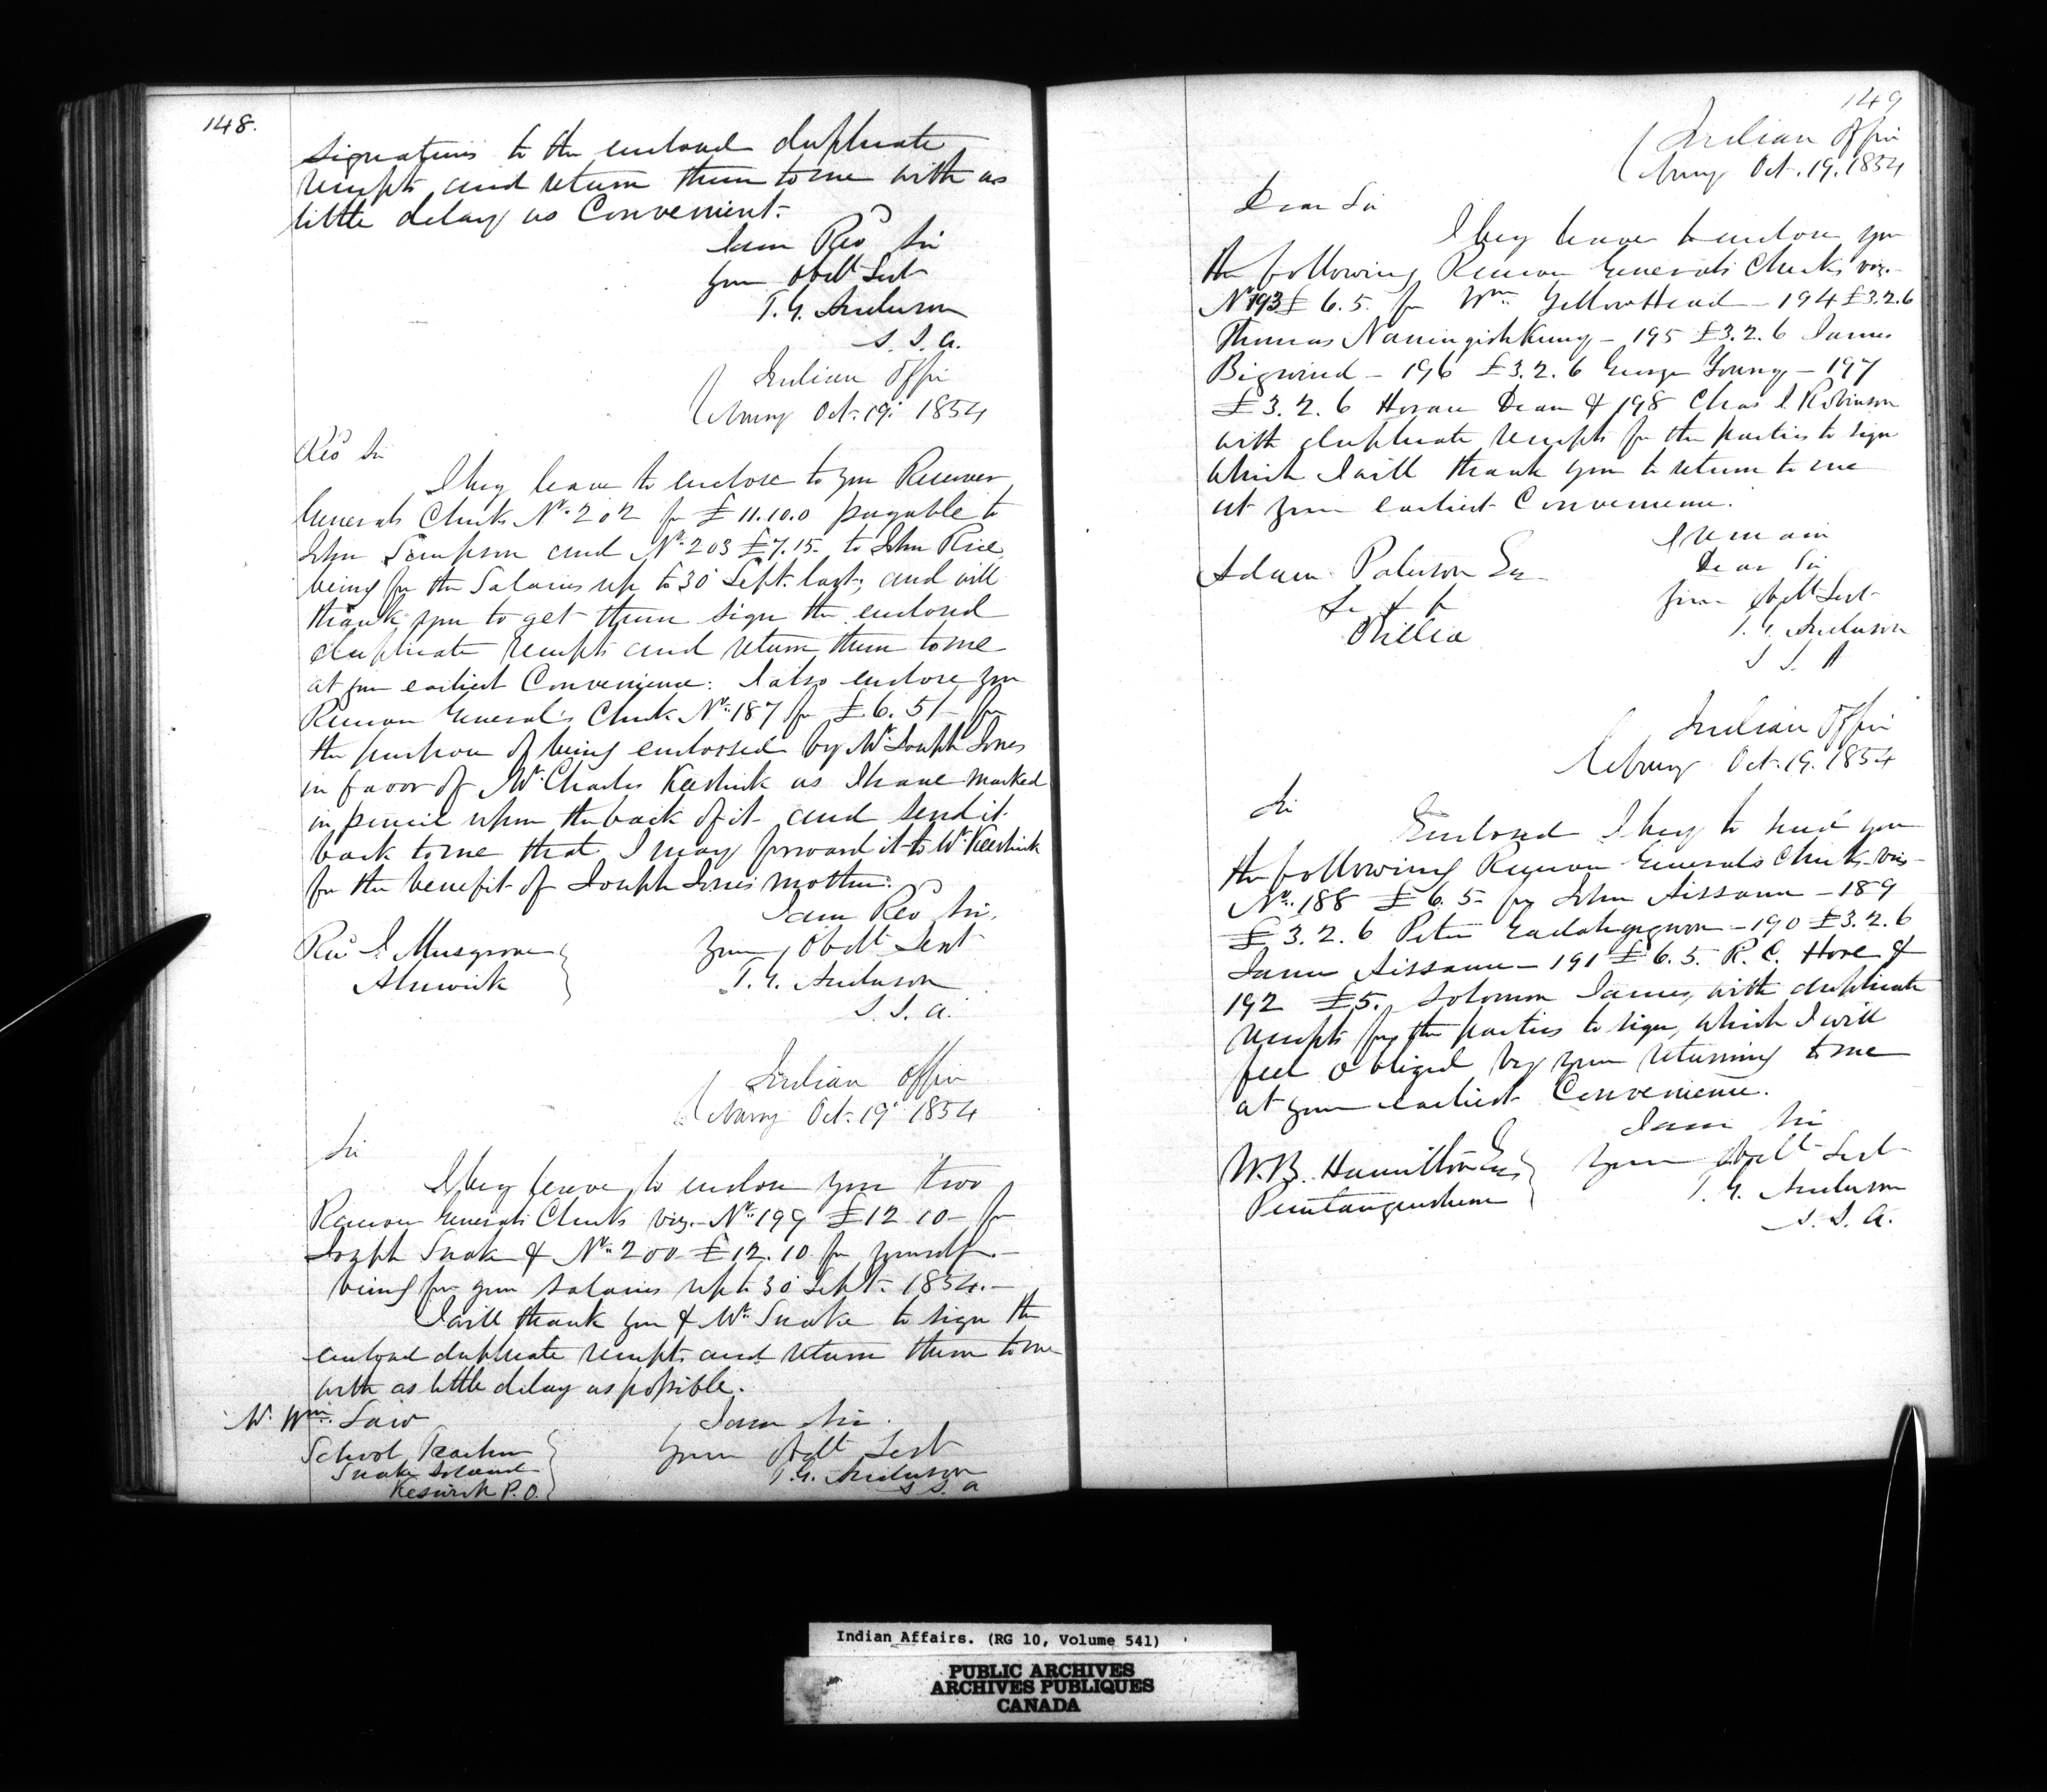 148.
signatures to the enclosed duplicate
receipts and return them to me with as
little delay as Convenient.
I am Revd Sir
Your Obdt Servt
T. G. Anderson
S. I. A.
Indian Office
Cobourg Oct. 19. 1854
Revd Sir
I beg leave to enclose to you Receiver
Generals Checks No. 202 for £11.10.0 payable to
John Simpson and No. 203 £7.15 - to John Rice
being for the Salaries up to 30 Sept. last, and will
thank you to get them sign the enclosed
duplicate receipts and return them to me
at your earliest Convenience. I also enclose you
Receiver General's Check No. 187 for £6.5/- for
the purpose of being endorsed by Mr Joseph Jones
in favor of Mr Charles Keeshick as I have marked
in pencil upon the back of it and send it
back to me that I may forward it to Mr Keeshick
for the benefit of Joseph Jones mother.
I am Revd Sir,
Your Obdt Servt
T. G. Anderson
S. I. A.
Revd J. Musgrove
Alnwick
Indian Office
Cobourg Oct. 19 1854
Sir
I beg leave to enclose you two
Receiver Generals Checks viz. - No. 199 £12 10 - for
Joseph Snake & No. 200 £12.10 for yourself. -
being for your salaries up to 30 Sept. 1854. -
I will thank you & Mr Snake to sign the
enclosed duplicate receipts and return them to me
with as little delay as possible.
Mr. Wm. Law
School Teacher
Snake Island
Keswick P.O.
I am Sir.
Your Obdt Servt
T. G. Anderson
S S. A
149
Indian Office
Cobourg Oct. 19. 1854
Dear Sir
I beg leave to enclose you
the following Receiver Generals Checks viz. -
No 193 £6.5. for Wm. YellowHead - 194 £3.2.6
Thomas Naningishkung - 195 £3.2.6 James
Bigwind - 196 £3.2.6 George Young - 197
£3.2.6 Horace Dean & 198 Chas J. Robinson
with duplicate receipts for the parties to sign
which I will thank you to return to me
at your earliest Convenience.
I remain
Dear Sir
Your Obdt Servt
T. G. Anderson
S I. A
Adam Paterson Esq
&c & &c
Orillia
Indian Office
Cobourg Oct. 19. 1854
Sir
Enclosed I beg to send you
the following Receiver Generals Checks viz -
No. 188 £6.5 - for John Aissance - 189
£3.2.6 Peter - 190 £3.2.6
James Aissance - 191 £6.5. R. C. Hore &
192 £5. Solomon James, with duplicate
receipts for the parties to sign, which I will
feel obliged by your returning to me
at your earliest Convenience.
I am Sir
Your Obdt Servt
T. G. Anderson
S. I. A.
W. B. Hamilton Esq
Penetanguishene
Indian Affairs. (RG 10, Volume 541)
PUBLIC ARCHIVES
ARCHIVES PUBLIQUES
CANADA